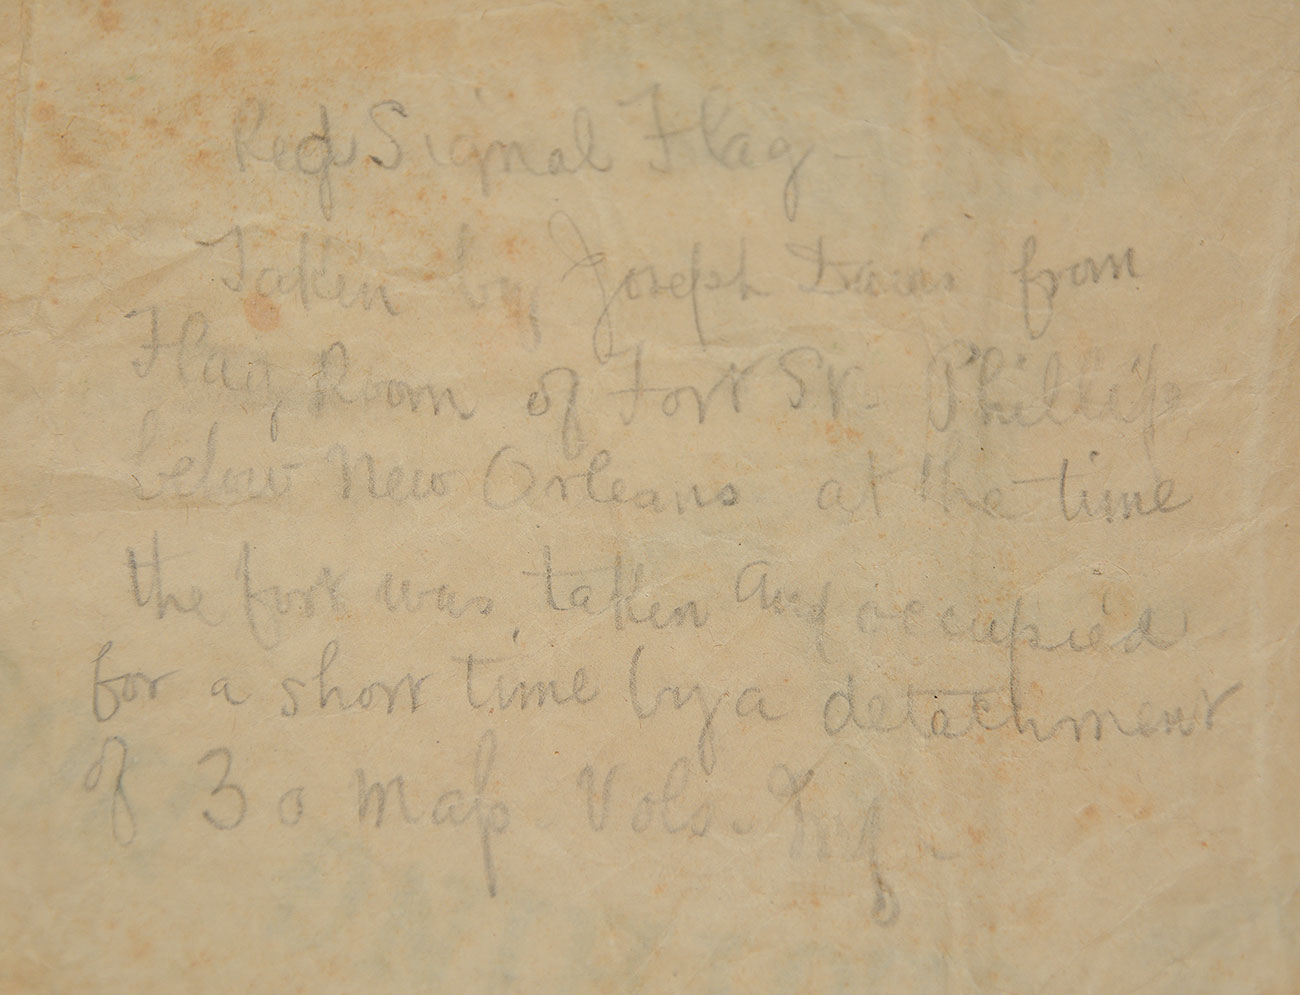 Red Signal Flag -
Taken by Joseph from
Flag Room of Fort St. Phillip
below New Orleans at the time
the fort was taken and occupied
for a short time by a detachment
of 30 Mass Vols.